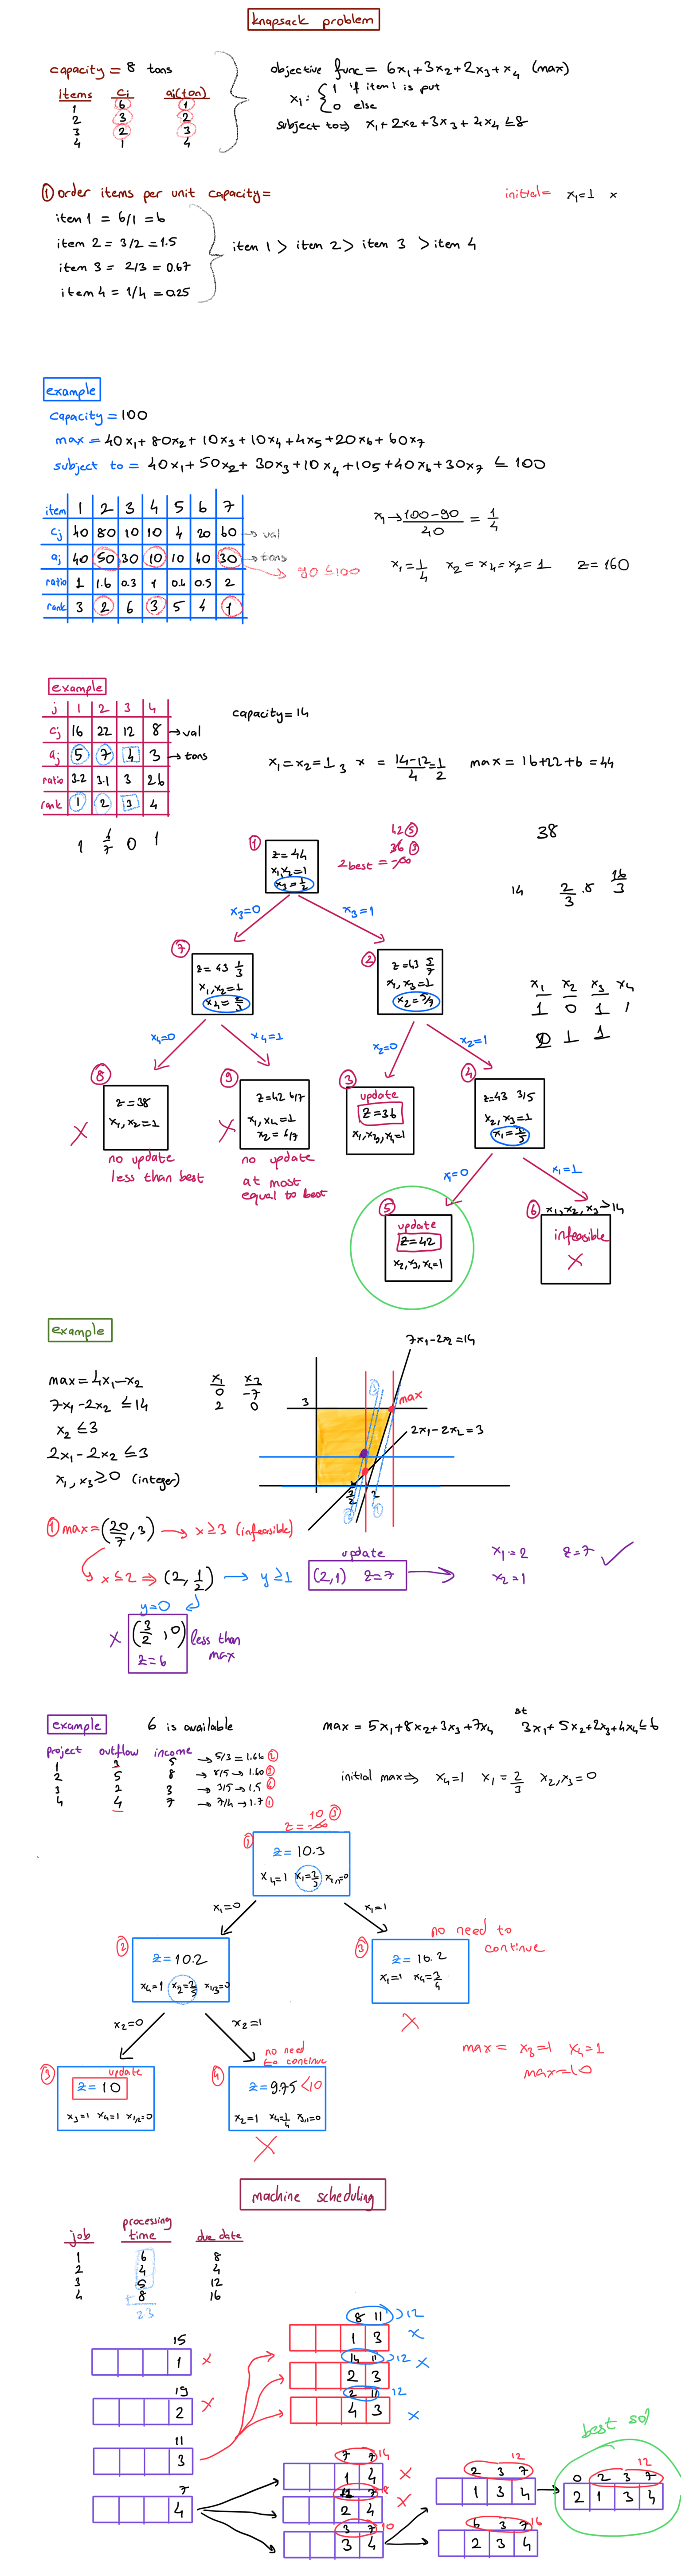 knapsack problem
capacity = 8 tons
items cj aj(ton)
1 6 1
2 3 2
3 2 3
4 1 4
objective func = 6x₁+3x₂+2x₃+x₄ (max)
xᵢ: { 1 if item i is put
0 else
subject to⇒ x₁+2x₂+3x₃+4x₄ ≤8
① order items per unit capacity=
initial= x₁=1 x
item 1 = 6/1 = 6
item 2 = 3/2 = 1.5
item 3 = 2/3 = 0.67
item 4 = 1/4 = 0.25
item 1 > item 2 > item 3 > item 4
example
capacity = 100
max = 40x₁+80x₂+10x₃+10x₄+4x₅+20x₆+60x₇
subject to = 40x₁+50x₂+30x₃+10x₄+10₅+40x₆+30x₇ ≤ 100
item 1 2 3 4 5 6 7
cj 40 80 10 10 4 20 60 → val
aj 40 50 30 10 10 40 30 → tons
ratio 1 1.6 0.3 1 0.4 0.5 2
rank 3 2 6 3 5 4 1
90 ≤100
x₁→ 100-90/40 = 1/4
x₁=1/4 x₂=x₄=x₇=1 z=160
example
j 1 2 3 4
cj 16 22 12 8 → val
aj 5 7 4 3 → tons
ratio 3.2 3.1 3 2.6
rank 1 2 3 4
capacity=14
x₁=x₂=1, x = 14-12/4 = 1/2 max = 16+22+6=44
1 6/7 0 1
① z=44
x₁,x₂=1
x₃=1/2
42 ⑤
36 ③
zbest = -∞
38
14 2/3 .8 16/3
x₃=0 x₃=1
⑦ z=43 1/3
x₁,x₂=1
x₄=2/3
② z=43 5/7
x₁,x₃=1
x₂=5/7
x₁ x₂ x₃ x₄
1 0 1 1
0 1 1
x₄=0 x₄=1
x₂=0 x₂=1
⑧ z=38
x₁,x₂=1
no update
less than best
⑨ z=42 6/7
x₁,x₄=1
x₂=6/7
no update
at most
equal to best
③ update
z=36
x₁,x₃,x₄=1
④ z=43 3/5
x₂,x₃=1
x₁=3/5
x₁=0 x₁=1
⑤ update
z=42
x₂,x₃,x₄=1
⑥ x₁,x₂,x₃>14
infeasible
example
max=4x₁-x₂
7x₁-2x₂ ≤14
x₂ ≤3
2x₁-2x₂ ≤3
x₁,x₃≥0 (integer)
x₁ x₂
0 -7
2 0
7x₁-2x₂=14
3
max
2x₁-2x₂=3
3/2 2
① max=(20/7,3) → x≥3 (infeasible)
x≤2 ⇒ (2, 1/2) → y≥1
update
(2,1) z=7
x₁=2 z=7
x₂=1
y=0
(3/2, 0)
z=6
less than
max
example
6 is available
project outflow income
1 3 5 → 5/3=1.66 ②
2 5 8 → 8/5→1.60 ③
3 2 3 → 3/5→1.5 ④
4 4 7 → 7/4→1.7 ①
max = 5x₁+8x₂+3x₃+7x₄
st
3x₁+5x₂+2x₃+4x₄≤6
initial max⇒ x₄=1 x₁=2/3 x₂,x₃=0
10 ③
z=-∞
① z=10.3
x₄=1 x₁=2/3 x₂,₃=0
x₁=0 x₁=1
② z=10.2
x₄=1 x₂=2/5 x₁,₃=0
③ z=10.2
x₁=1 x₄=3/4
no need to
continue
x₂=0 x₂=1
③ update
z=10
x₃=1 x₄=1 x₁,₂=0
④ no need
to continue
z=9.75 <10
x₂=1 x₄=1/4 x₃,₁=0
max = x₃=1 x₄=1
max=10
machine scheduling
job processing time due date
1 6 8
2 4 4
3 5 12
4 +8 16
23
15
1
19
2
11
3
7
4
8 11 >12
1 3
14 11 >12
2 3
2 11 12
4 3
7 7 14
1 4
2 4
3 7 10
3 4
2 3 7 12
1 3 4
6 3 7 16
2 3 4
best sol
0 2 3 7 12
2 1 3 4